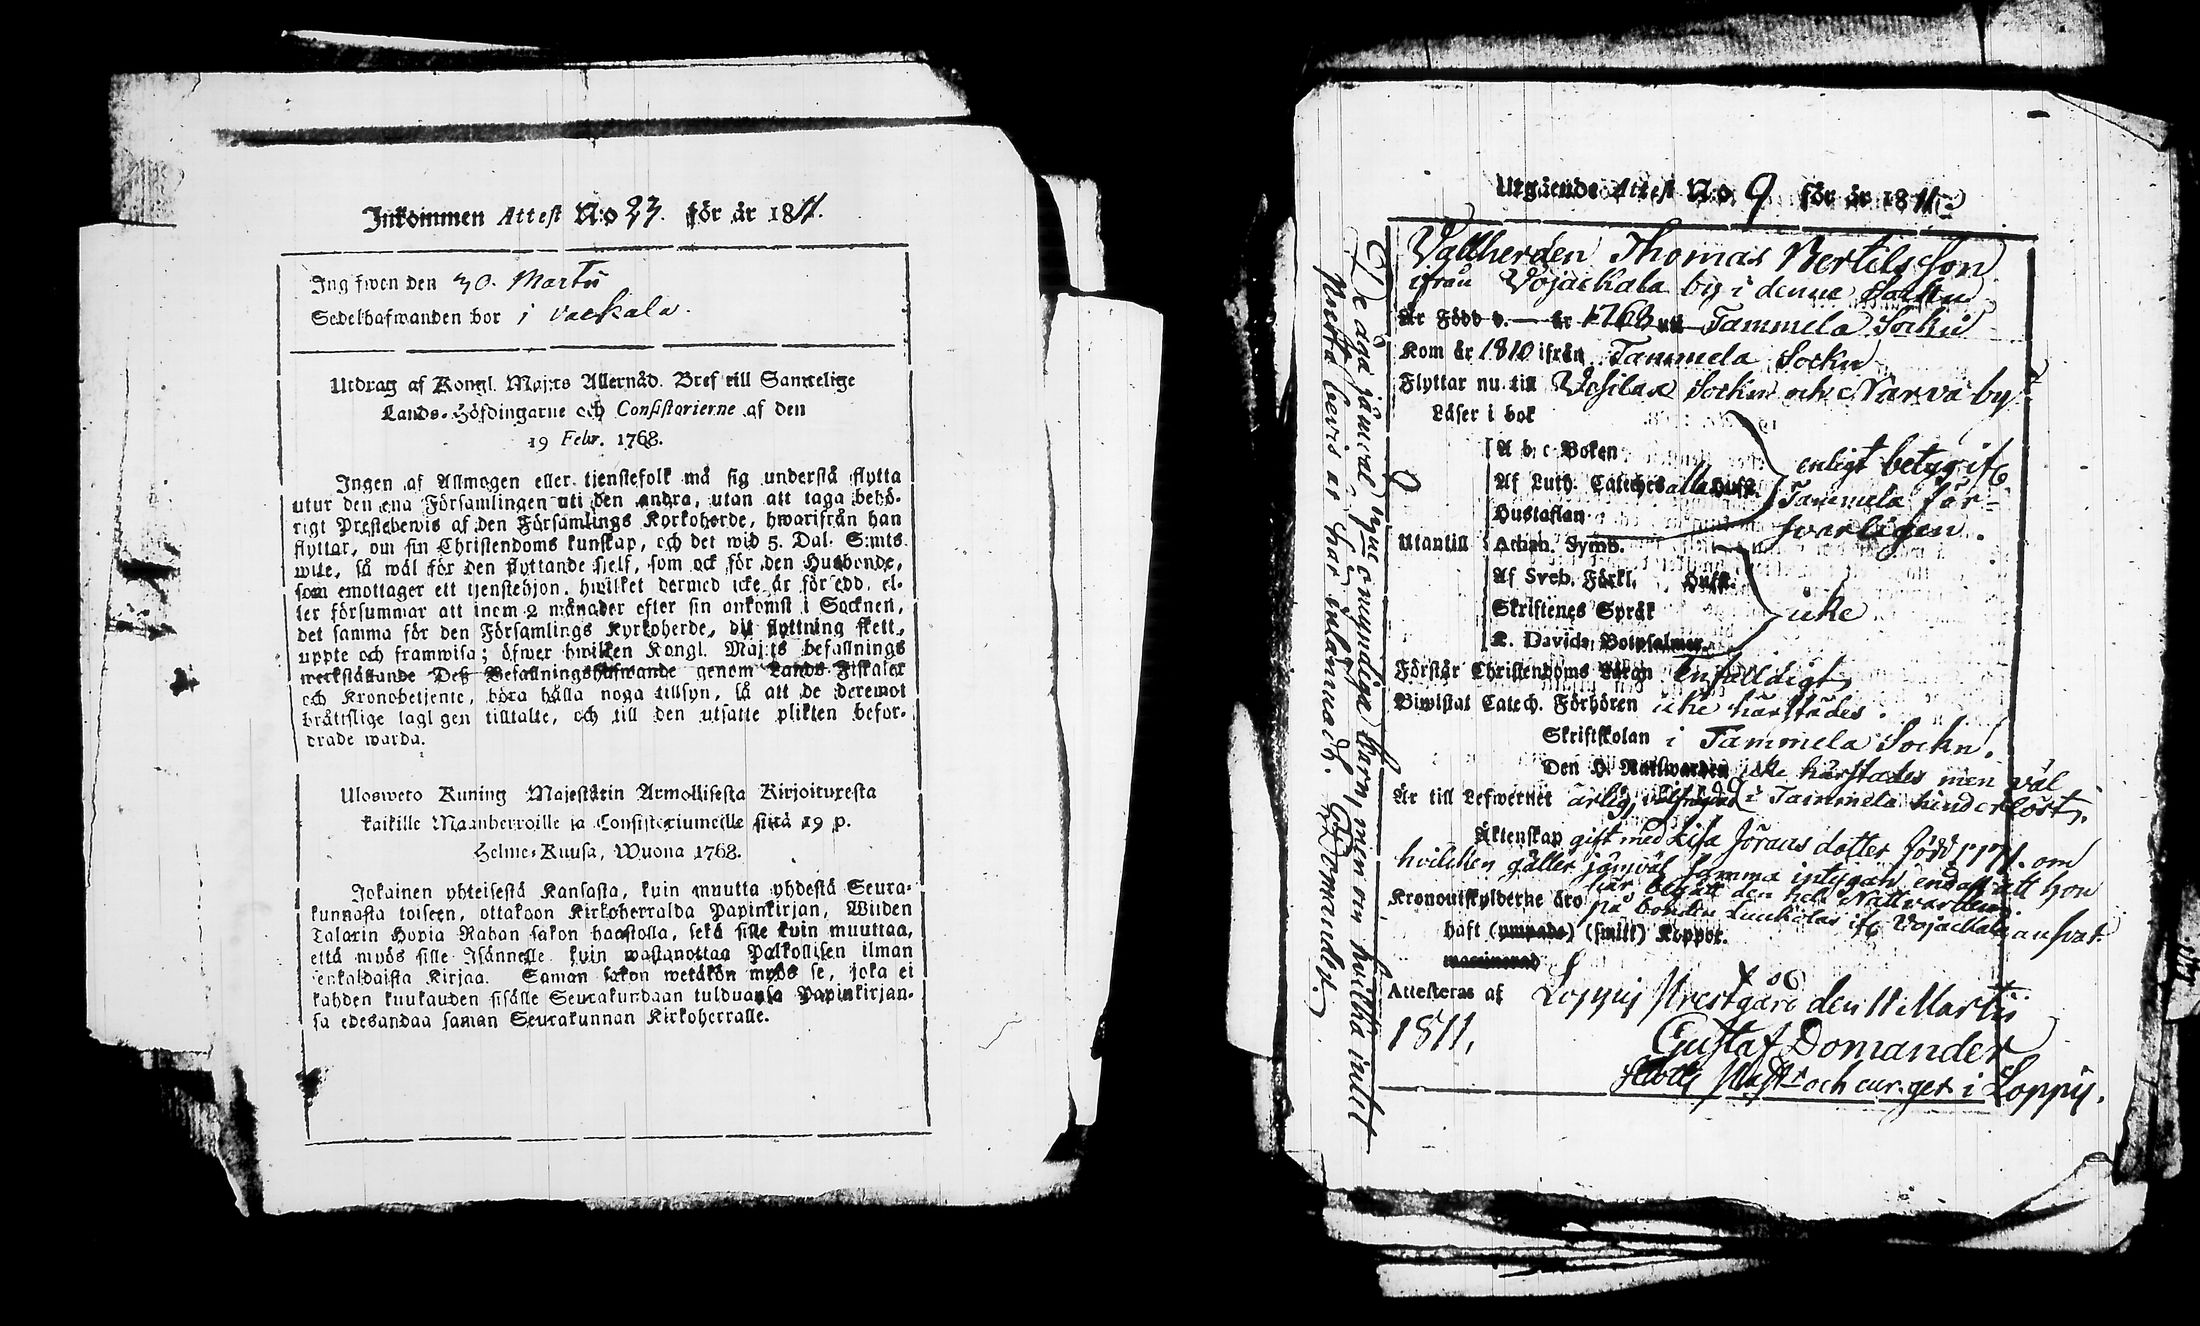 Inkommen Attest N:o 23. för år 1811.
Ing fwen den 30. Martii
Sedelhafwanden bor i Vackala.
Utdrag af Kongl. Maj:ts Allernåd. Bref till Samtelige
Lands-Höfdingarne och Consistorierne af den
19 Febr. 1768.
Ingen af Allmogen eller tjenstefolk må sig understå flytta
utur den ena Församlingen uti den andra, utan att taga behö-
rigt Prestebewis af den Församlings Kyrkoherde, hwarifrån han
flyttar, om sin Christendoms kunskap, och det wid 5. Dal. S:mts
wite, så wäl för den flyttande sjelf, som ock för den Husbonde,
som emottager ett tjenstehjon, hwilket dermed icke är försedd, el-
ler försummar att inom 2 månader efter sin ankomst i Socknen,
det samma för den Församlings Kyrkoherde, dit flyttning skett,
uppte och framwisa; öfwer hwilken Kongl. Maj:ts befallnings
werkställande Deß Befallningshafwande genom Lands-Fiskaler
och Kronobetjente, böra hålla noga tillsyn, så att de deremot
brättslige lagl gen tilltalte, och till den utsatte plikten befor-
drade warda.
Ulosweto Kuning Majestätin Armollisesta Kirjoituxesta
kaikille Maanherroille ja Consistoriumeille siitä 19 p.
Helme-Kuusa, Wuona 1768.
Jokainen yhteisestä Kansasta, kuin muutta yhdestä Seura-
kunnasta toiseen, ottakoon Kirkoherralda Papinkirjan, Wiiden
Talarin Hopia Rahan sakon haastolla, sekä sille kuin muuttaa,
että myös sille Isännelle kuin wastanottaa Palkollisen ilman
senkaldaista Kirjaa. Saman sakon wetäkön myös se, joka ei
kahden kuukauden sisälle Seurakundaan tulduansa Papinkirjan-
sa edesandaa saman Seurakunnan Kirkoherralle.
Utgående Attest N:o 9 för år 1811.
Vallherden Thomas Bertilsson
ifrån Vojackala by i denne Sockn
Är Född d. — år 1768 uti Tammela Sockn
Kom år 1810 ifrån Tammela Sockn
Flyttar nu till Vesilax Sockn och Narva by
Läser i bok
A b c Boken
Af Luth. Cateches alla Hufst.
Hustaflan
enligt betyg if.
Tammela för-
svarligen.
Utantill
Athan. Symb.
Af Sveb. Förkl. Hufst.
Skriftenes Språk
K. Davids Botpsalmer
icke
Förstår Christendoms Läran enfalldigt
Biwistat Catech. Förhören icke härstädes.
Skriftskolan i Tammela Sockn.
Den H. Nattwarden icke härstädes men väl
i Tammela
Är till Lefwernet ärlig, hinderlöst.
Äktenskap gift med Lisa Jörans dotter född 1771. om
hvilcken gäller jämväl samma intygan, endast att hon
här begått den hel. Nattvarden
Kronoutskylderne äro på bonden ifr. Vojackala ansvar.
Haft (ympade) (smitt) Koppor.
Attesteras af Loppis Prestgård den 11 Martii
1811,
Gustaf Domander
och cur. ger. i Loppis.
De äga jämväl 2ne omyndiga Barn, men om hvilka intet
Prestabevis är här inlämnadt. G. Domander.